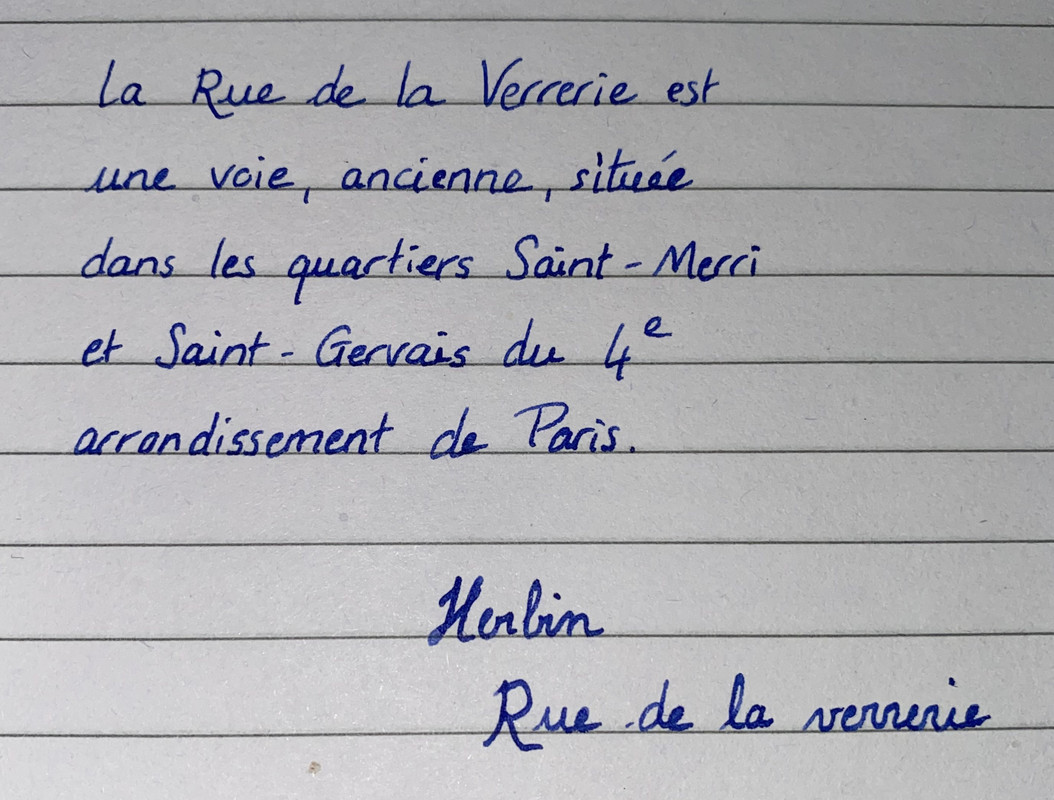 La Rue de la Verrerie est
une voie, ancienne, située
dans les quartiers Saint-Merri
et Saint-Gervais du 4e
arrondissement de Paris.
Herbin
Rue de la verrerie